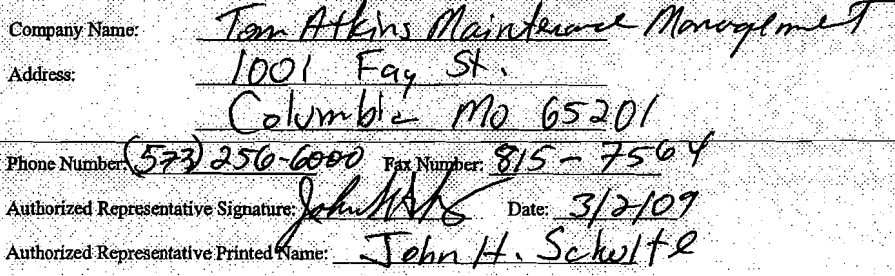 Company Name: Tom Atkins Maintenance Management
Address: 1001 Fay St.
Columbia Mo 65201
Phone Number: (573) 256-6000 Fax Number: 815-7564
Authorized Representative Signature: Date: 3/2/09
Authorized Representative Printed Name: John H. Schulte